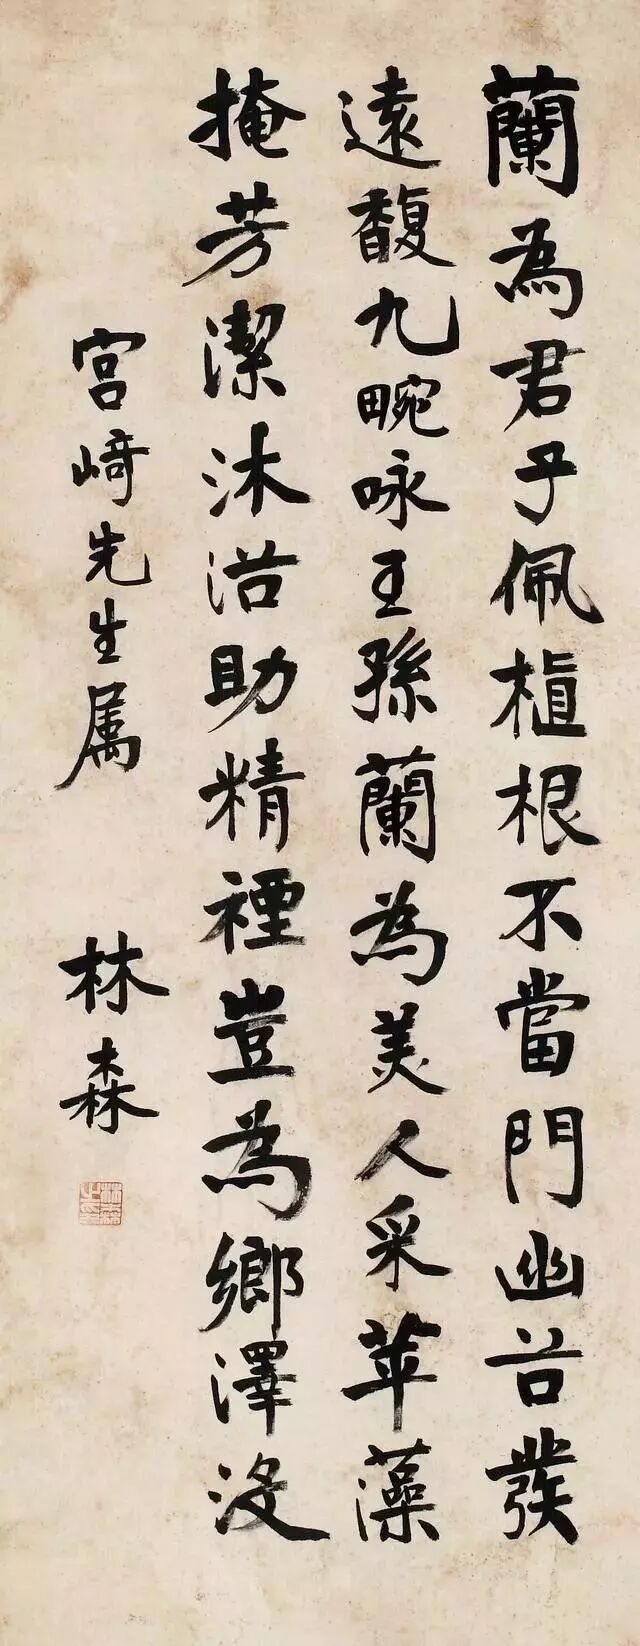 蘭為君子佩植根不當門幽谷發
遠馥九畹咏王孫蘭為美人采苹藻
掩芳潔沐浴助精禋豈為鄉澤没
宮﨑先生属
林森